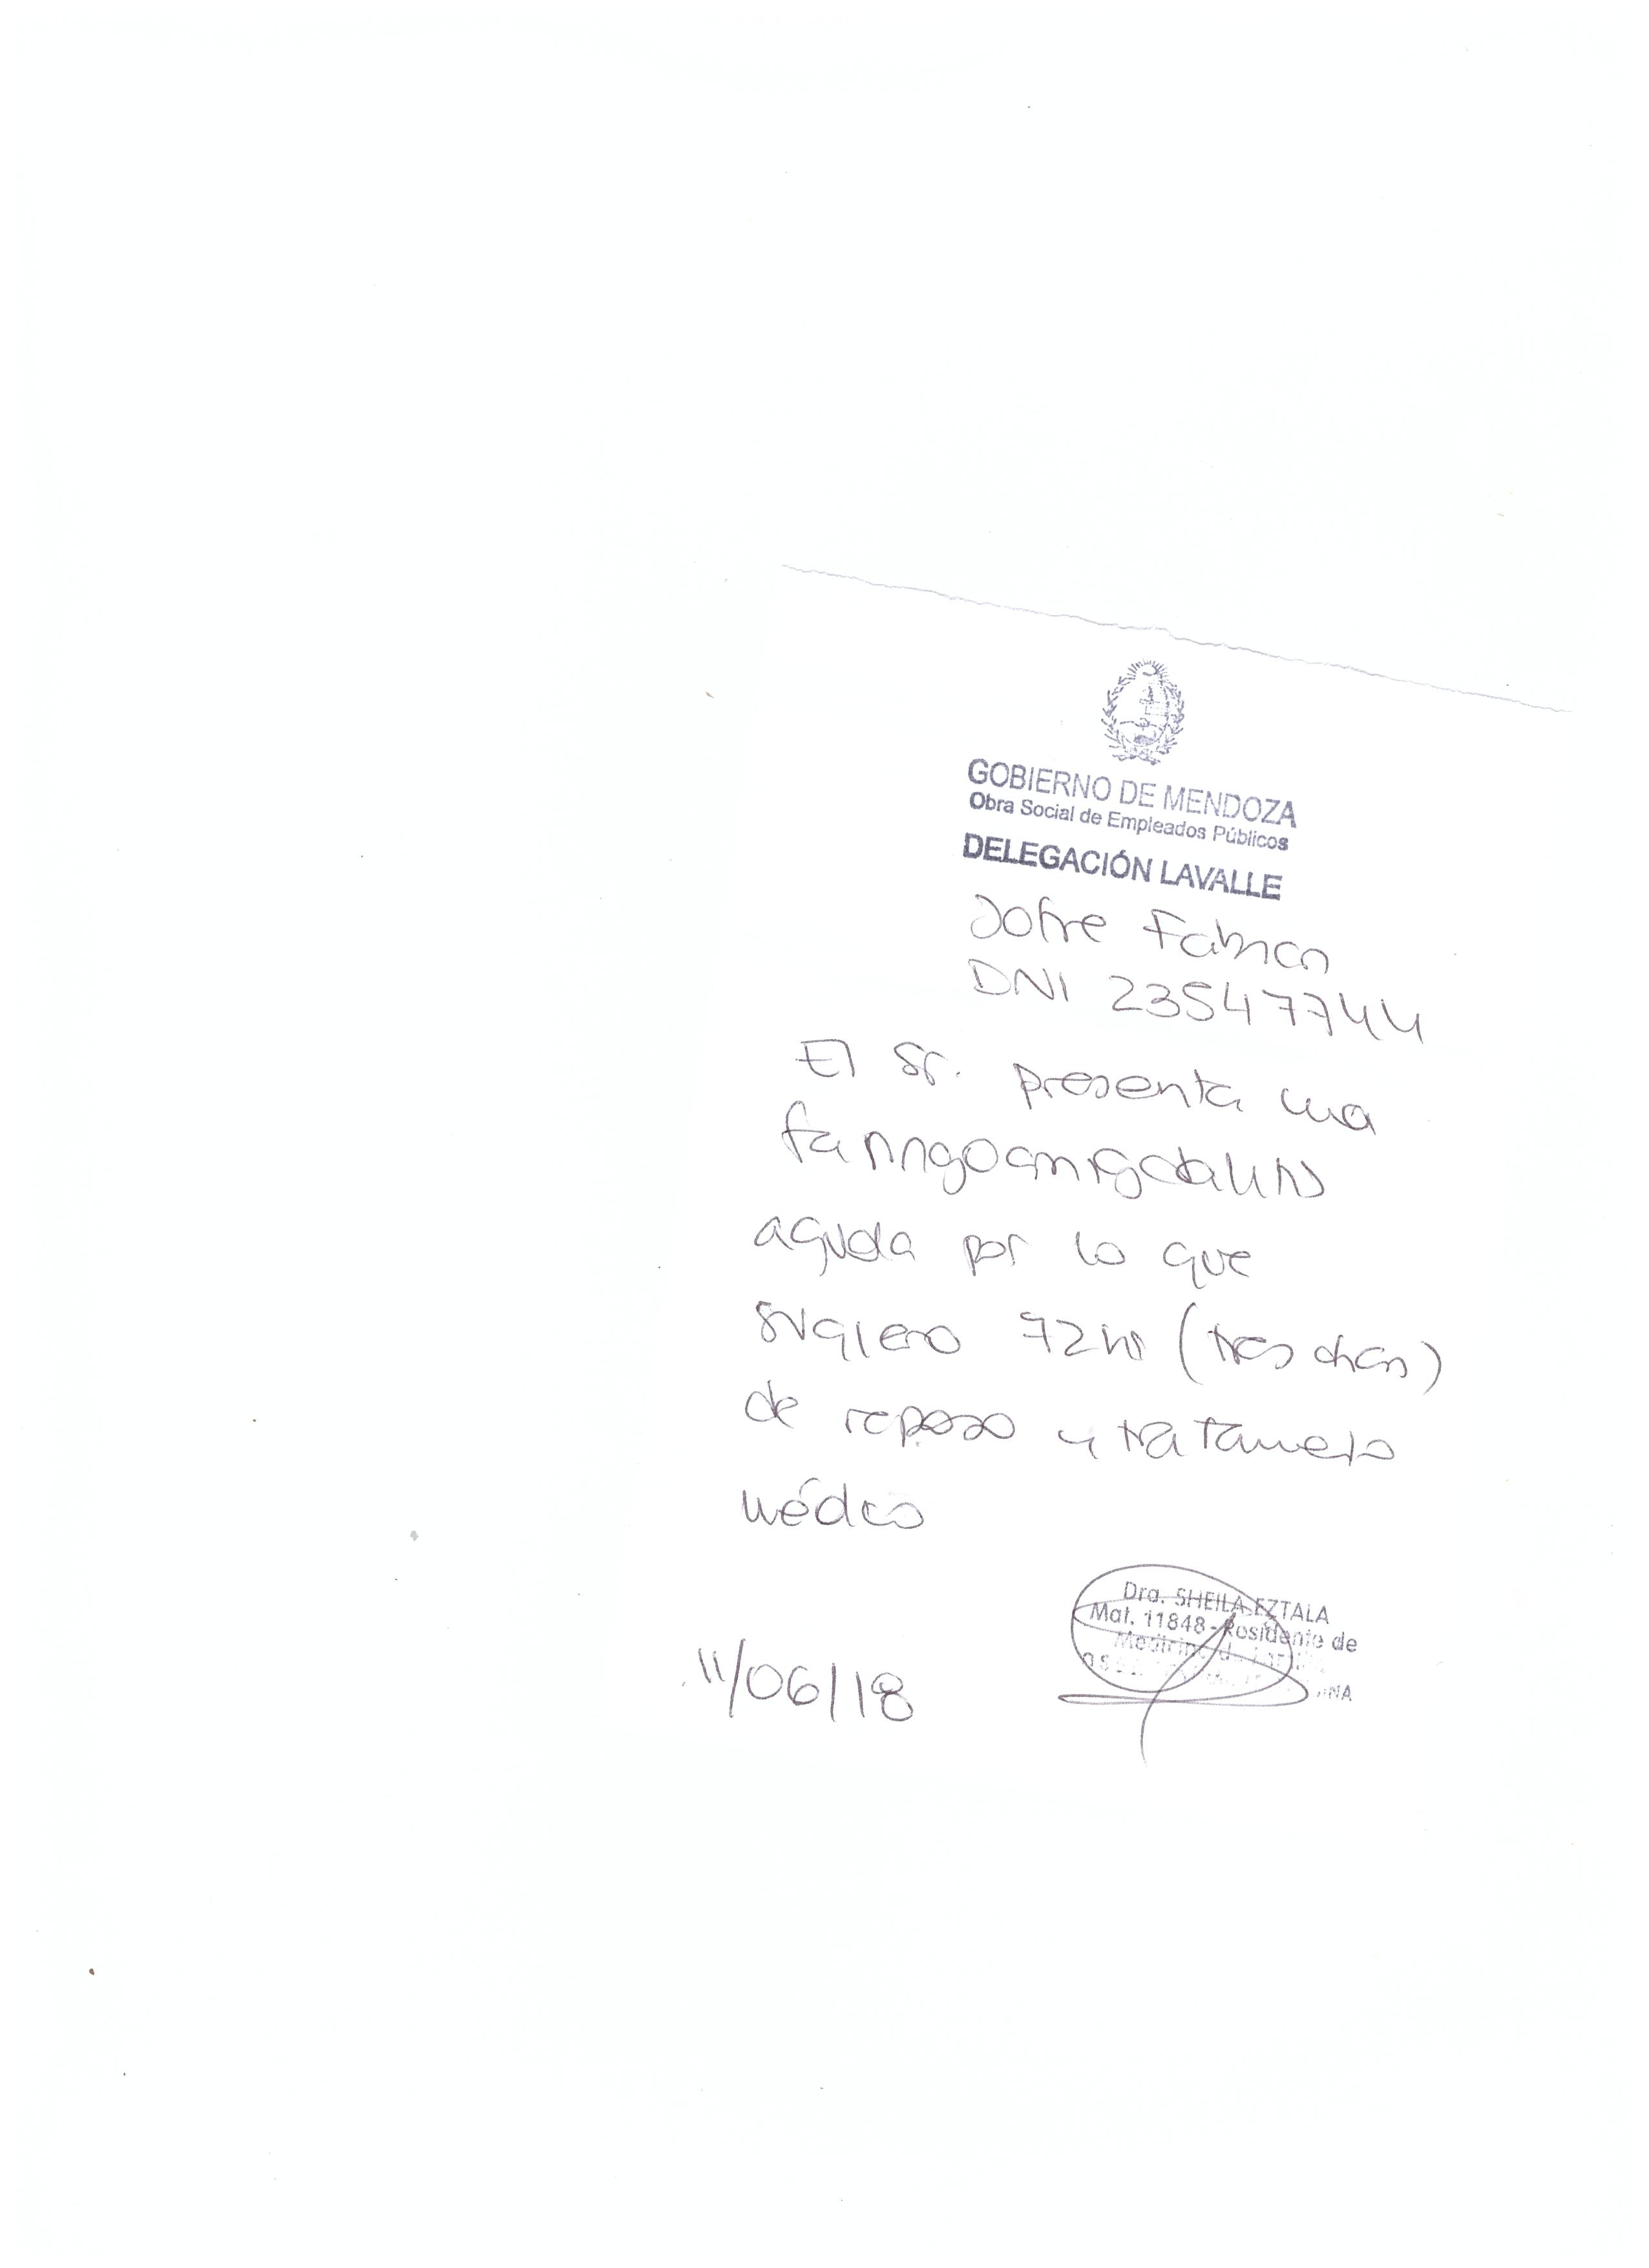 GOBIERNO DE MENDOZA
Obra Social de Empleados Públicos
DELEGACIÓN LAVALLE
Jofre Fabricio
DNI 23547744
El Sr. presenta una
faringoamigdalitis
aguda por lo que
sugiero 72hs (tres días)
de reposo y tratamiento
médico
11/06/18
Dra. SHEILA EZTALA
Mat. 11848 - Residente de
Medicina